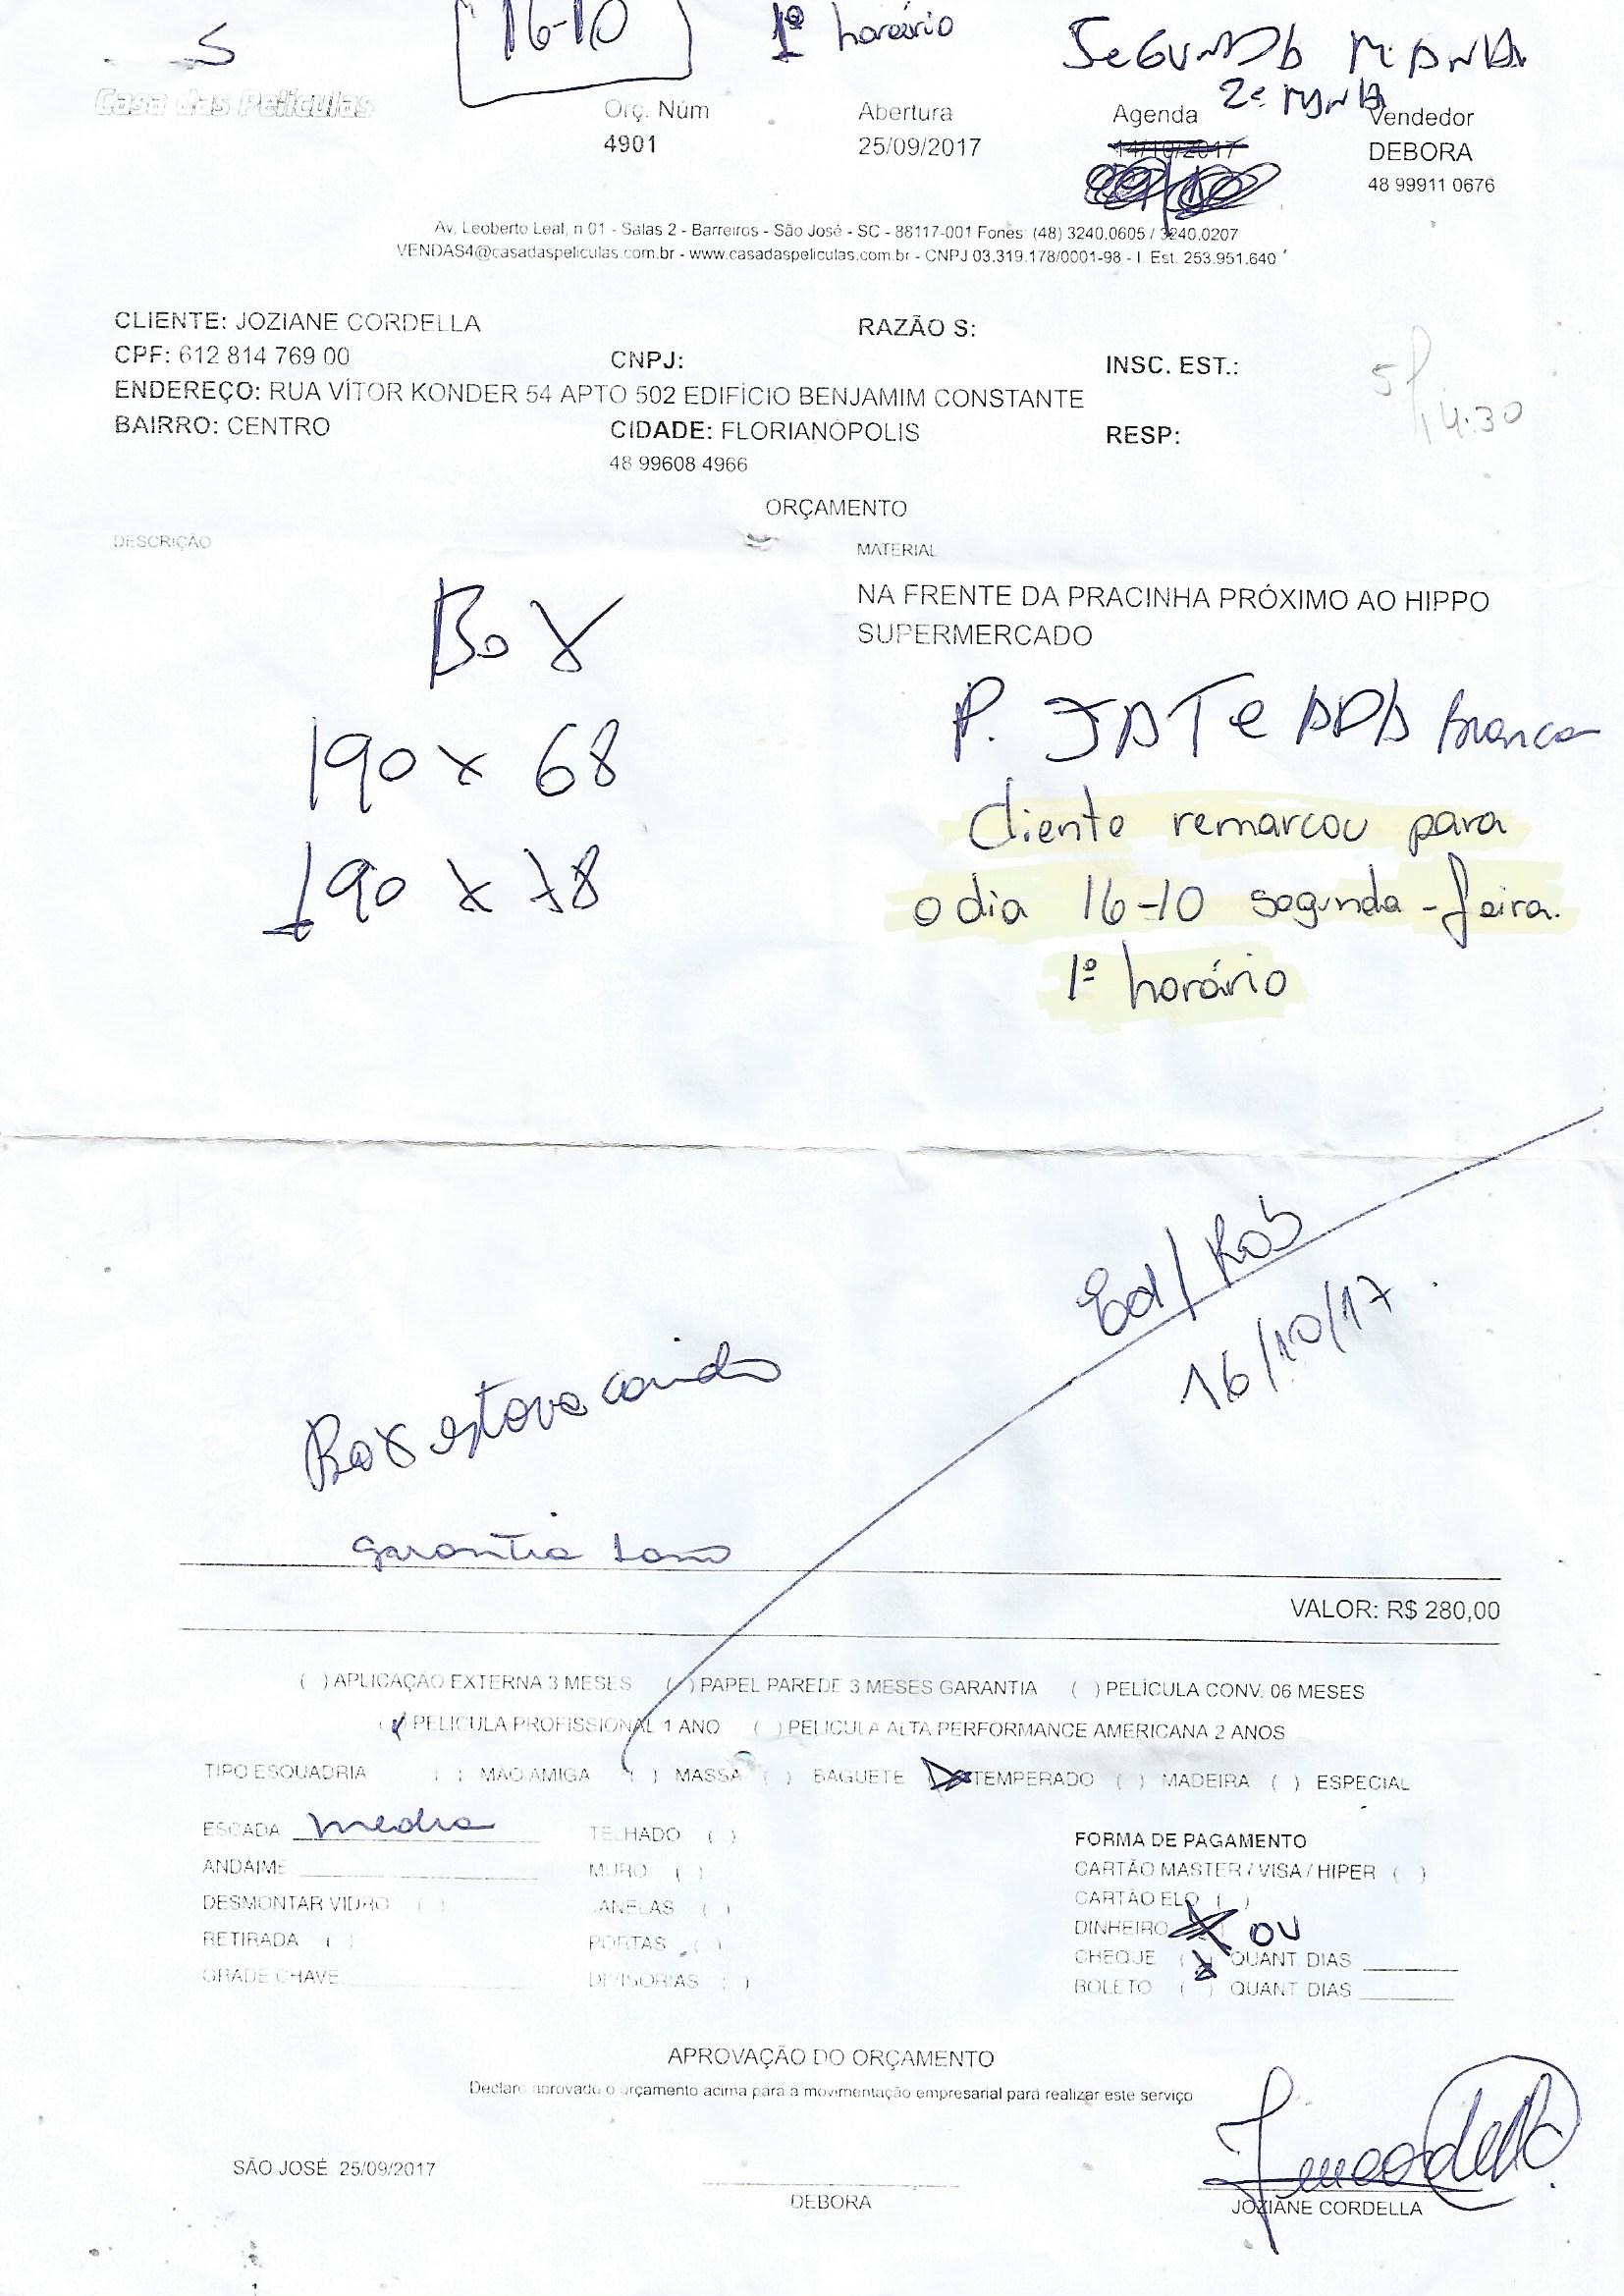 S
16-10
1º horário
SEGUNDA MANHA
2ª MANHA
Casa das Películas
Orç. Núm
Abertura
Agenda
Vendedor
4901
25/09/2017
14/10/2017
DEBORA
48 99911 0676
Av. Leoberto Leal, n 01 - Salas 2 - Barreiros - São José - SC - 88117-001 Fones: (48) 3240.0605 / 3240.0207
VENDAS4@casadaspeliculas.com.br - www.casadaspeliculas.com.br - CNPJ 03.319.178/0001-98 - I. Est. 253.951.640
CLIENTE: JOZIANE CORDELLA
RAZÃO S:
CPF: 612 814 769 00
CNPJ:
INSC. EST.:
ENDEREÇO: RUA VÍTOR KONDER 54 APTO 502 EDIFÍCIO BENJAMIM CONSTANTE
BAIRRO: CENTRO
CIDADE: FLORIANÓPOLIS
RESP:
48 99608 4966
14:30
ORÇAMENTO
DESCRIÇÃO
MATERIAL
NA FRENTE DA PRACINHA PRÓXIMO AO HIPPO
SUPERMERCADO
Box
190 x 68
190 x 78
P. JATEADA Branca
Cliente remarcou para
o dia 16-10 segunda-feira.
1º horário
Ed/Rob
16/10/17
Box estava
garantia 1 ano
VALOR: R$ 280,00
( ) APLICAÇÃO EXTERNA 3 MESES ( ) PAPEL PAREDE 3 MESES GARANTIA ( ) PELÍCULA CONV. 06 MESES
( ) PELICULA PROFISSIONAL 1 ANO ( ) PELICULA ALTA PERFORMANCE AMERICANA 2 ANOS
TIPO ESQUADRIA ( ) MÃO AMIGA ( ) MASSA ( ) BAGUETE ( ) TEMPERADO ( ) MADEIRA ( ) ESPECIAL
ESCADA media
TELHADO ( )
FORMA DE PAGAMENTO
ANDAIME
MURO ( )
CARTÃO MASTER / VISA / HIPER ( )
DESMONTAR VIDRO ( )
JANELAS ( )
CARTÃO ELO ( )
RETIRADA ( )
PORTAS ( )
DINHEIRO (X) OU
GRADE CHAVE
DIVISORIAS ( )
CHEQUE (x) QUANT DIAS
BOLETO ( ) QUANT DIAS
APROVAÇÃO DO ORÇAMENTO
Declaro aprovado o orçamento acima para a movimentação empresarial para realizar este serviço
SÃO JOSÉ 25/09/2017
DEBORA
JOZIANE CORDELLA